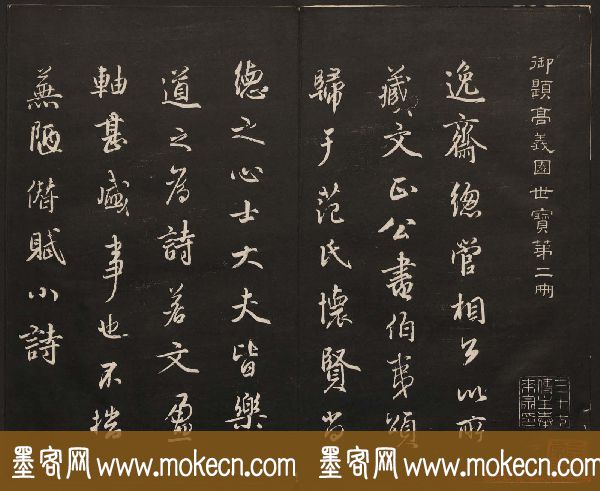 御題高義園世寶第二冊
逸齋總管相公以所
藏文正公書伯夷頌
歸于范氏懷賢尚
德之心士大夫皆樂
道之為詩若文盈
軸甚盛事也不
蕪陋僭賦小詩
墨客网 www.mokecn.com 墨客网 www.mokecn.com